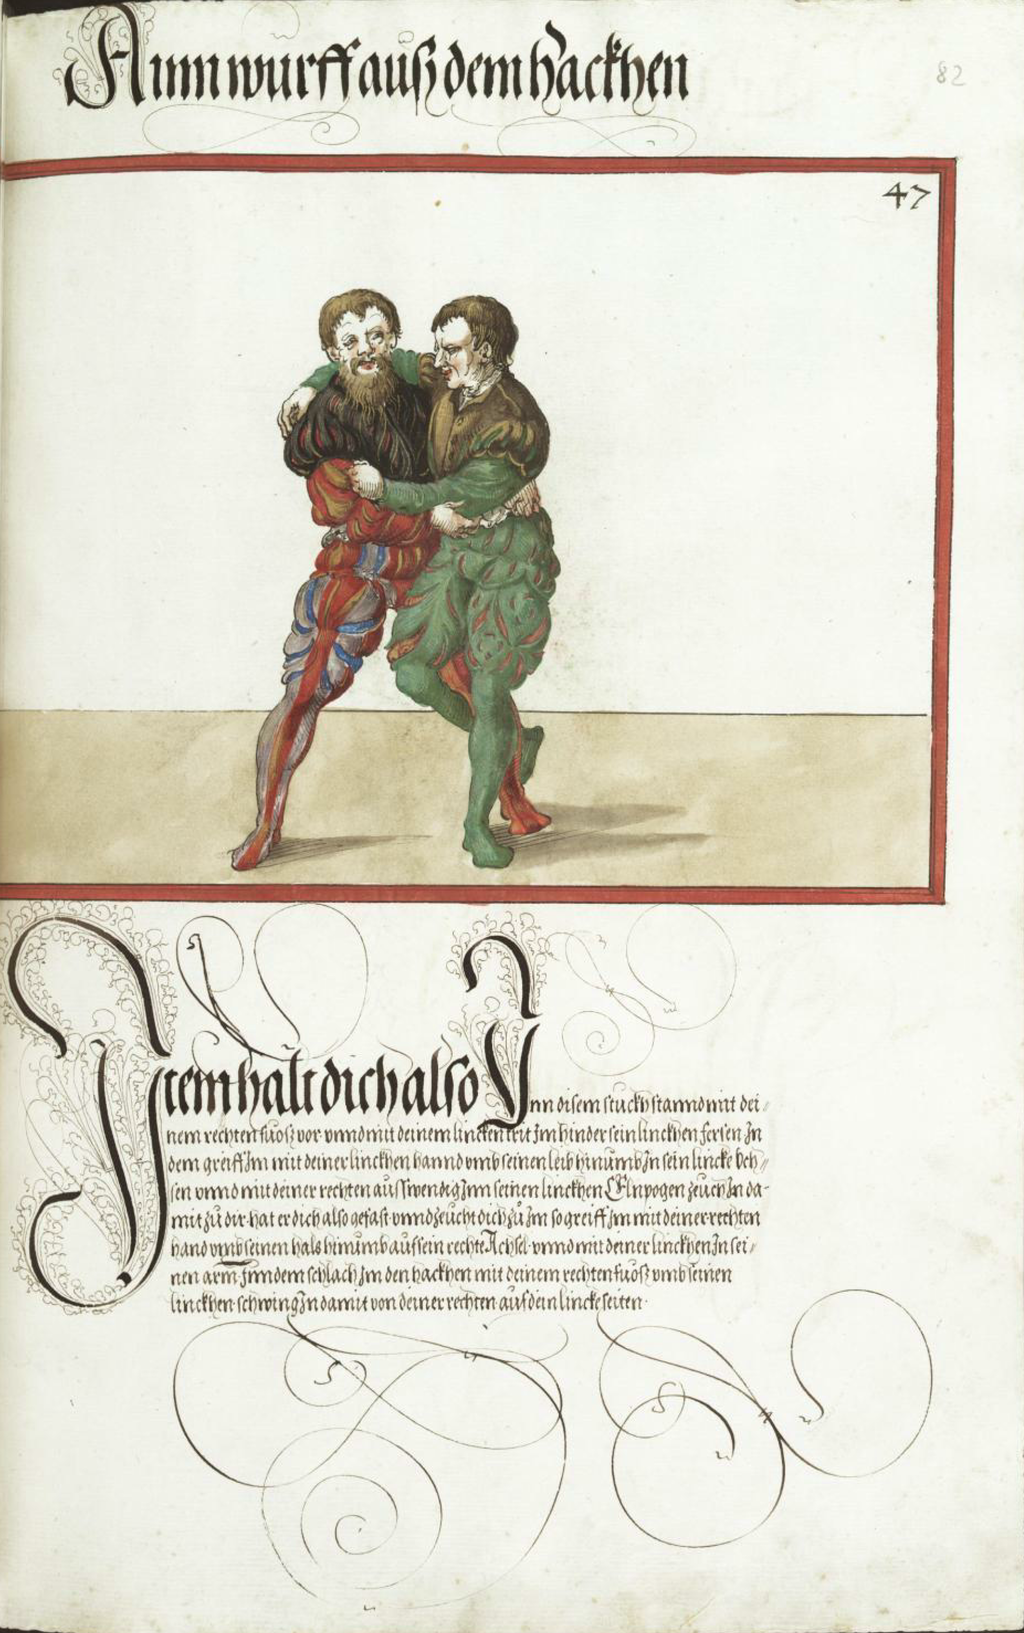 Ainn wurff auß dem hackhen
82
47
Item halt dich also Inn disem stuckh stannd mit dei-
nem rechten fuosz vor vnnd mit deinem lincken trit Im hinder sein linckhen fersen In
dem greiff Im mit deiner linckhen hannd vmb seinen leib hinumb In sein lincke Veh-
sen vnnd mit deiner rechten ausswendig Inn seinen linckhen Elnpogen zeuch In da-
mit zů dir hat er dich also gefast vnnd zeucht dich zů Im so greiff Im mit deiner rechten
hand vmb seinen hals hinumb auf sein rechte Achsel vnnd mit deiner linckhen In sei-
nen arm Inn dem schlach Im den hackhen mit deinem rechten fuosz vmb seinen
linckhen schwing In damit von deiner rechten auf dein lincke seiten